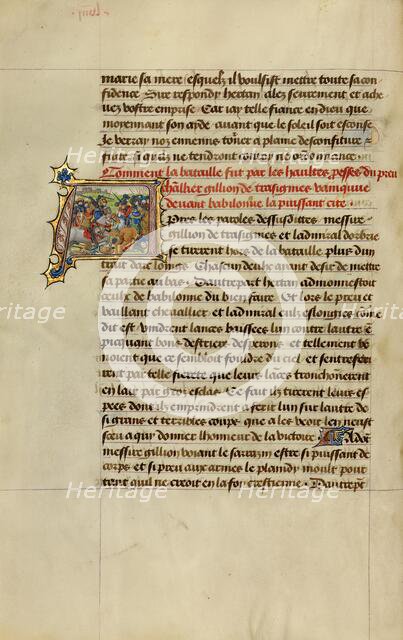 marie sa mere esquelz il voulsist mettre toute sa con
fidence Sire respondy hertan alez seurement et ache
vez vostre emprise Car iay telle fiance en dieu que
moyennant son ayde avant que le soleil soit esconse
Je verray noz ennemis tourner a plaine desconfiture
si quilz ne tendront conroy ne ordonnance
Comment la bataille fut par les haultes proesses du preu
chlr gillion de trasignies vaincue
devant babilonne la puissant cite
Apres les paroles dessusdittes messire
gillion de trasignies et ladmiral dorbrie
se tirerent hors de la bataille plus dun
trait darc loings Chascun deulz ayant desir de mettre
sa partie au bas Dautrepart hertan admonnestoit
ceulz de babilonne du bien faire Et lors le preu et
vaillant chevallier et ladmiral eulz eslongies come
dit est vindrent lances baissees lun contre lautre
picquant bons destriers desperons tellement
moient que ce sembloit foudre du ciel et sentrefe
rirent par telle fierete que leurs lances tronchonnerent
en lair par gros esclas Ce fait ilz tirerent leurs es
pees dont ilz emprindrent a ferir lun sur lautre de
si grans et terribles coups que a les veoir len neust
sceu a qui donner lhonneur de la victoire Adont
messire gillion voiant le sarrazin estre si puissant de
corps et si preu aux armes le plaindy moult pour
tant quil ne creoit en la foy crestienne Dautrepart
Heritage
Heritage
Heritage
Heritage
Heritage
Heritage